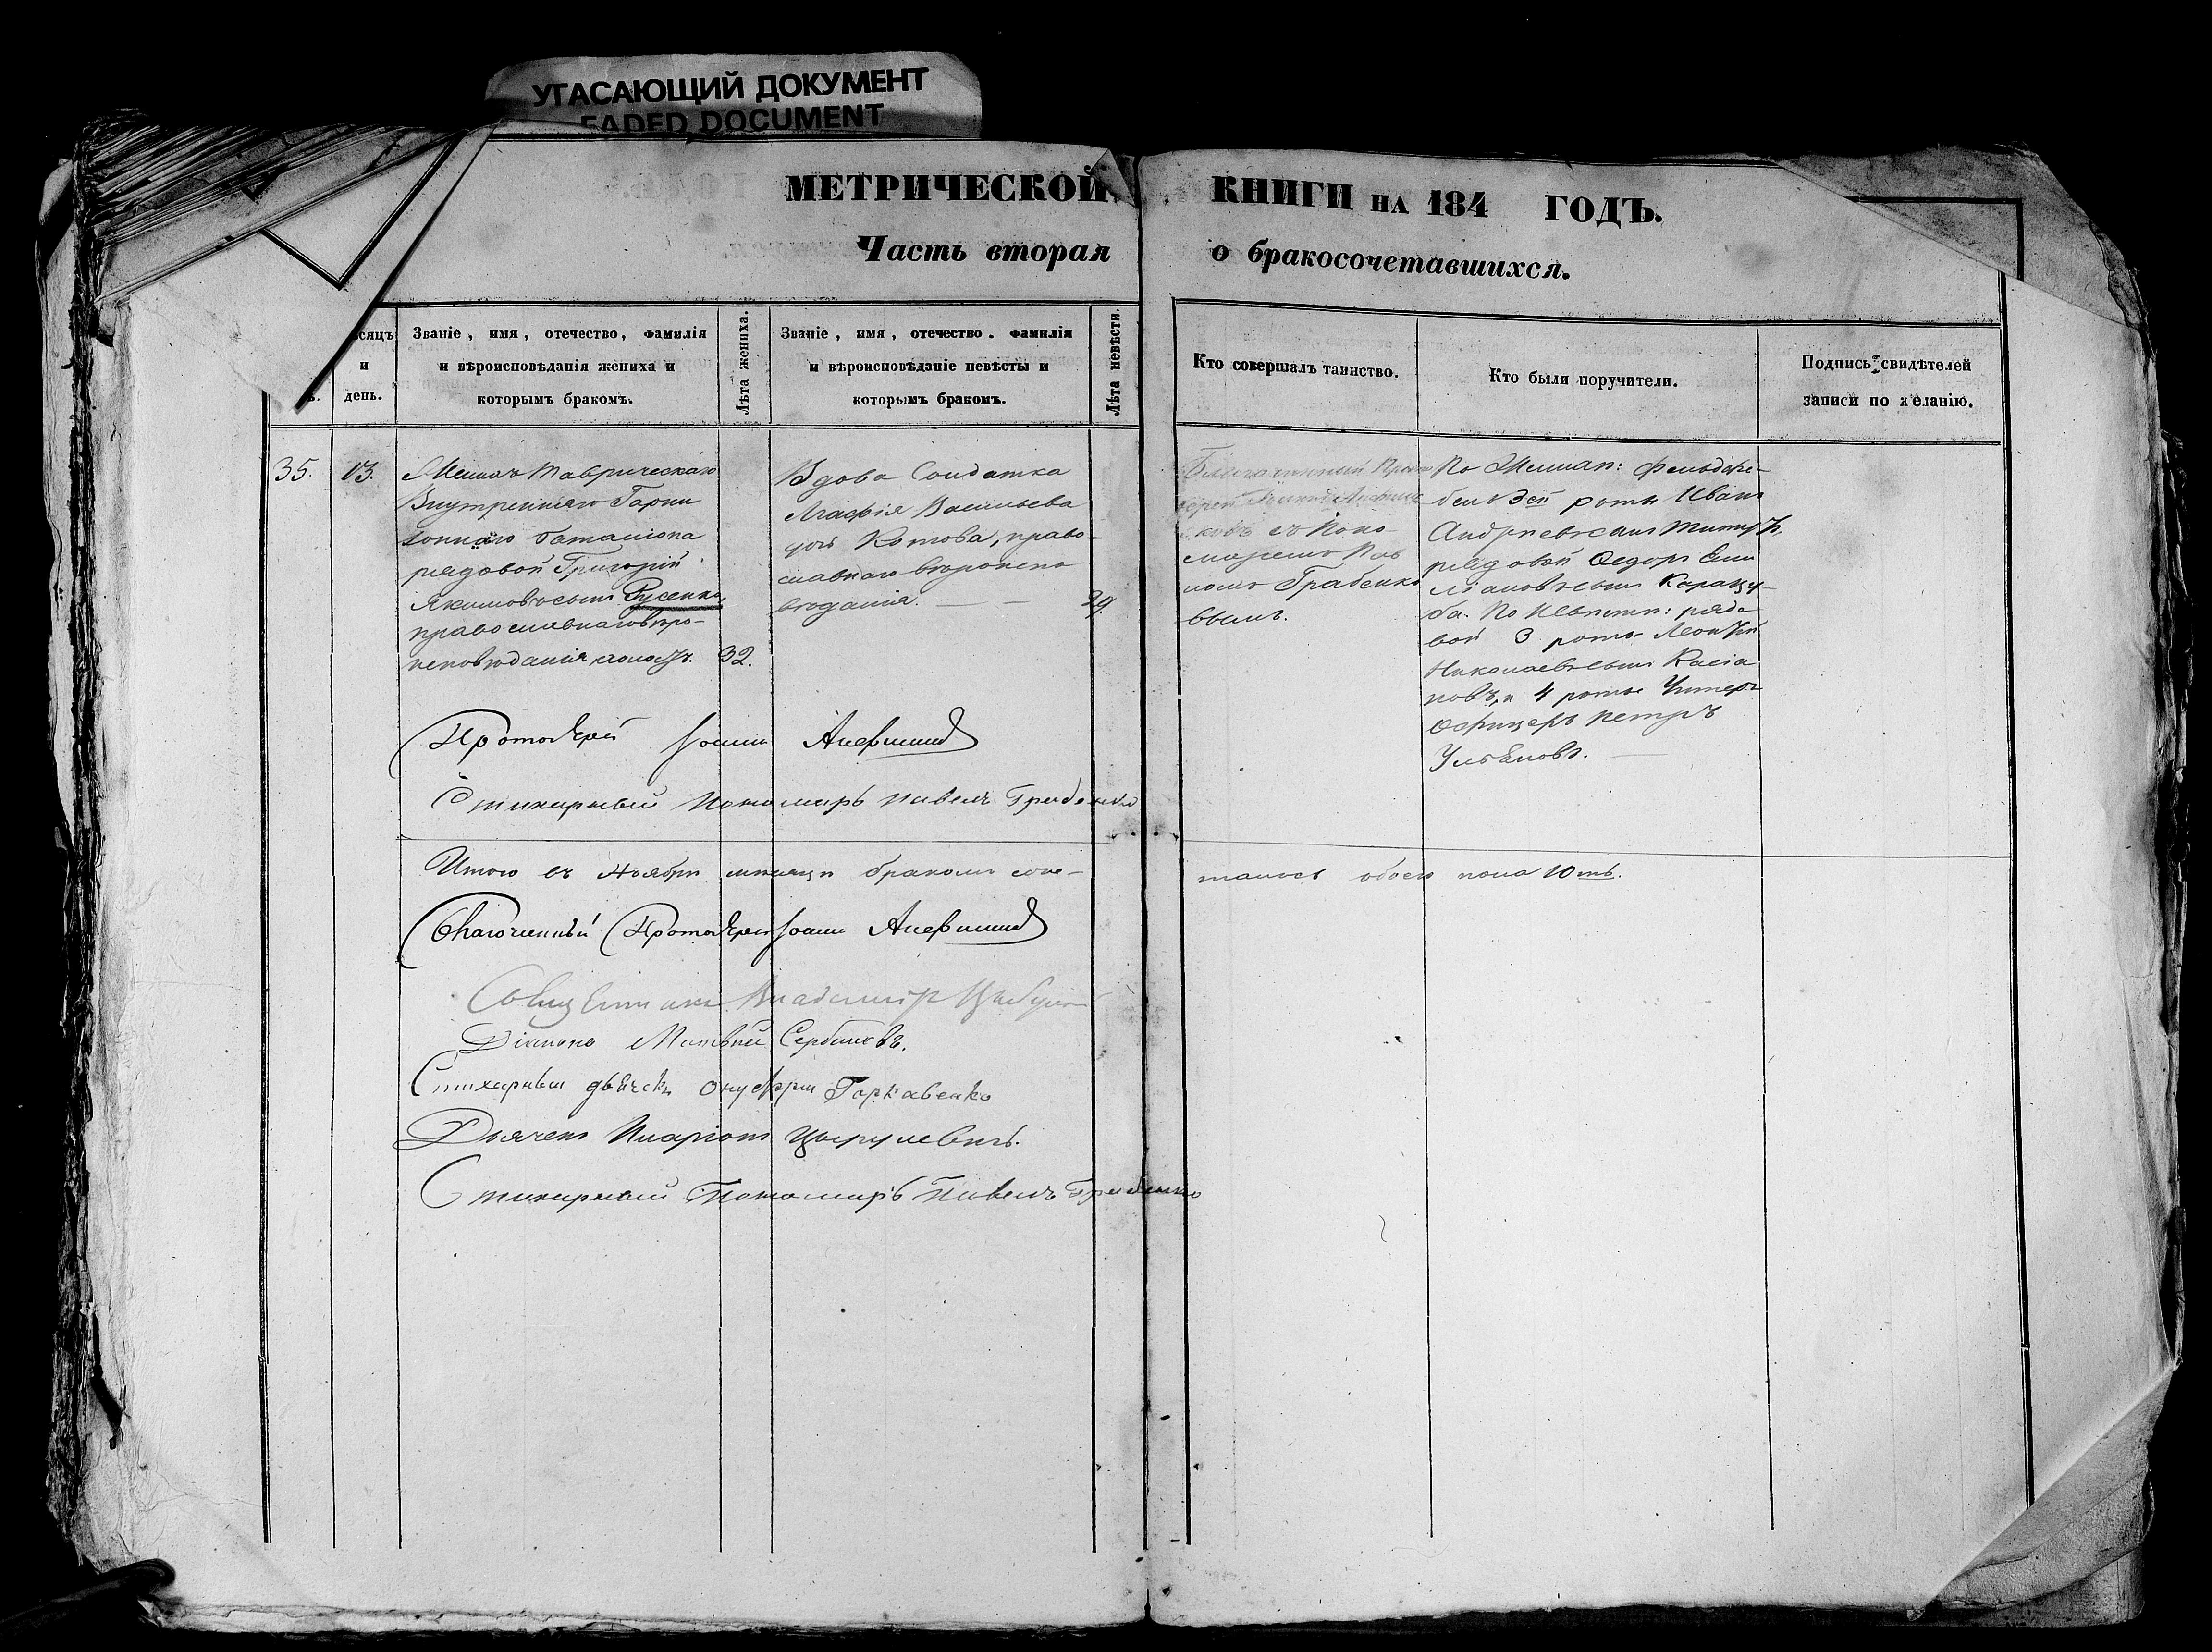 УГАСАЮЩИЙ ДОКУМЕНТ
FADED DOCUMENT
МЕТРИЧЕСКОЙ КНИГИ НА 184 ГОДЪ.
Часть вторая о бракосочетавшихся.
сяцъ
и
день.
Званіе, имя, отечество, фамилія
и вѣроисповѣданія жениха и
которымъ бракомъ.
Лѣта жениха.
Званіе, имя, отечество. фамилія
и вѣроисповѣданіе невѣсты и
которымъ бракомъ.
Лѣта невѣсты.
Кто совершалъ таинство.
Кто были поручители.
Подпись свидѣтелей
записи по желанію.
35.
13.
Таврическаго
Внутренняго Гарни
зоннаго баталіона
рядовой Григорій
Якимовъ сынъ Русенко,
православнаго вѣро-
исповѣданія холостъ.
32.
Вдова Солдатка
Агафія Васильева
дочь Котова, право-
славнаго вѣроиспо
вѣданія.
29.
Благочинный Прото
іерей
съ Поно
маремъ Пав
ломъ Грабенко
вымъ.
По Жених: фельдфе-
бель 3ей роты Иванъ
Андреевъ сынъ
рядовой Ѳедоръ Еми
ліановъ сынъ Карацу-
ба. По Невѣстѣ: рядо
вой 3 роты Леонтій
Николаевъ сынъ Касіа
новъ, и 4 роты Унтеръ
Офицеръ Петръ
Ульяновъ.
Протоіерей Іоаннъ
Стихарный Пономарь Павелъ Грабенко
Итого въ Ноябрѣ мѣсяцѣ бракомъ соче-
талось обоего пола 10ть.
Благочинный Протоіерей Іоаннъ
Священникъ Владиміръ
Діаконъ Матвей Сербиновъ.
Стихарный дьячекъ Онуфрій Горкавенко
Дьячекъ Иларіонъ Цырулевичъ.
Стихарный Пономарь Павелъ Грабенко